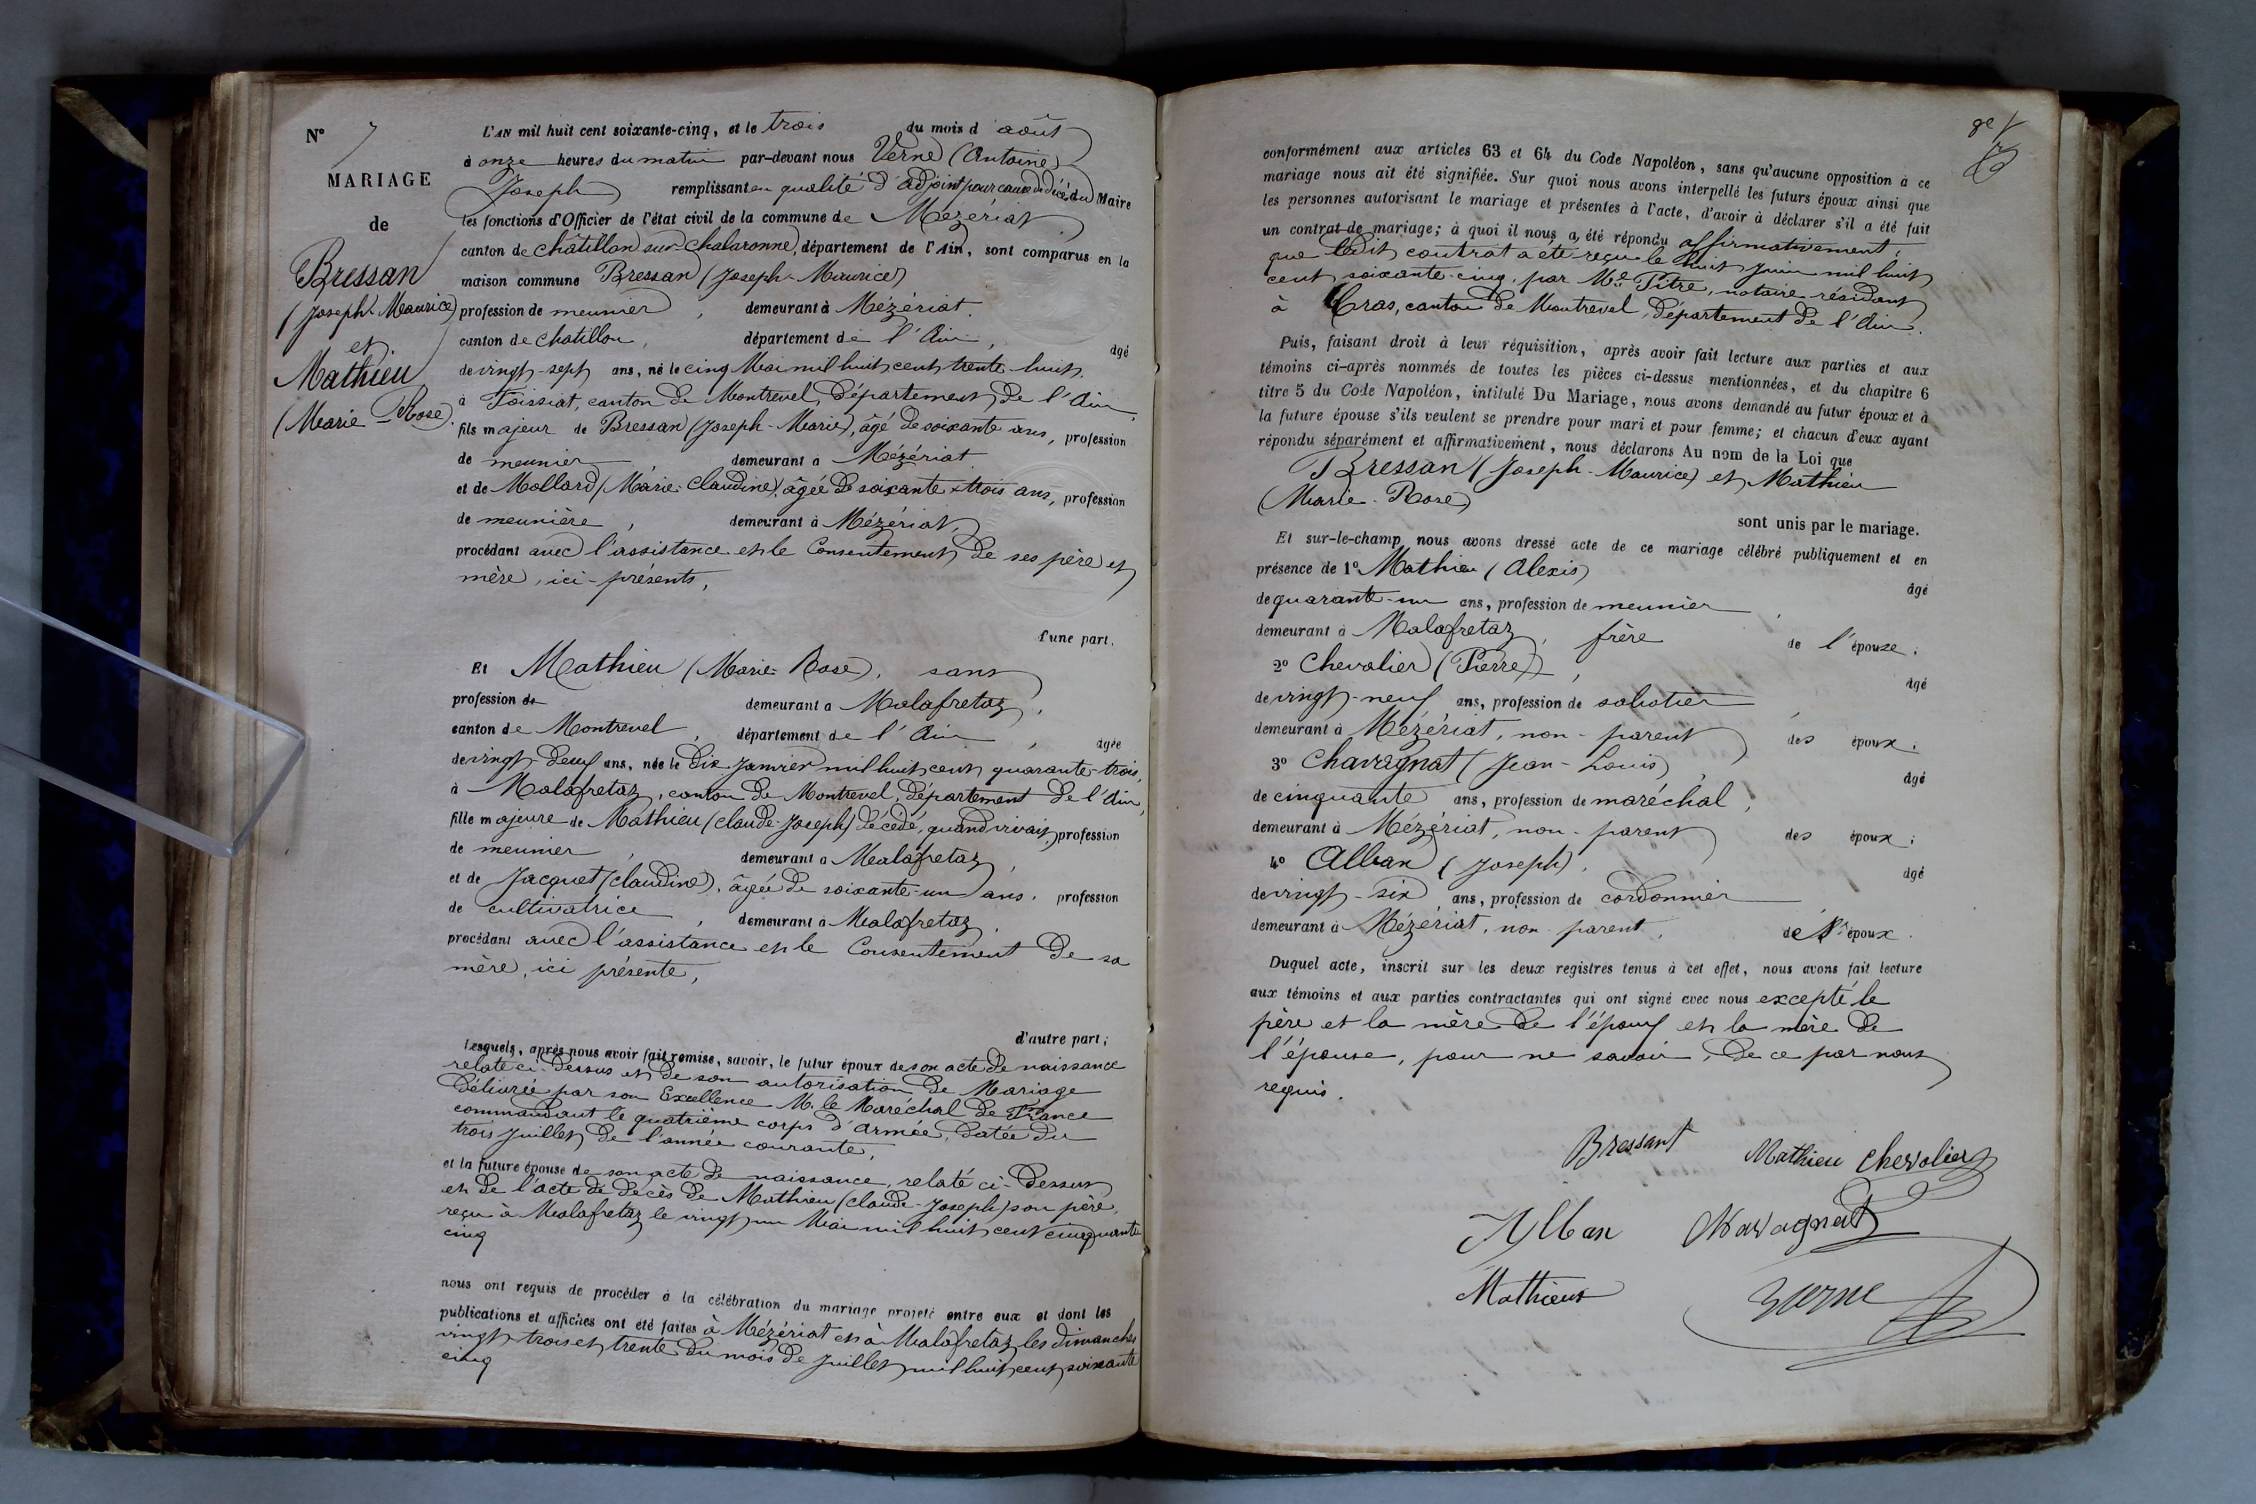 N° 7
MARIAGE
de
Bressan
(Joseph-Maurice)
et
Mathieu
(Marie-Rose).
L'AN mil huit cent soixante-cinq, et le trois du mois d'août
à onze heures du matin par-devant nous Verne (Antoine)
Joseph) remplissant en qualité d'adjoint pour cause de décès du Maire
les fonctions d'Officier de l'état civil de la commune de Mézériat
canton de Châtillon sur-Chalaronne, département de l'Ain, sont comparus en la
maison commune Bressan (Joseph-Maurice)
profession de meunier, demeurant à Mézériat.
canton de Chatillon, département de l'Ain, âgé
de vingt-sept ans, né le cinq Mai mil huit cent trente-huit.
à Foissiat, canton de Montrevel, département de l'Ain,
fils majeur de Bressan (Joseph-Marie), âgé de soixante ans, profession
de meunier demeurant a Mézériat
et de Mollard (Marie-Claudine), âgée de soixante-trois ans, profession
de meunière, demeurant à Mézériat,
procédant avec l'assistance et le Consentement de ses père et
mère, ici-présents,
d'une part.
Et Mathieu (Marie-Rose), sans
profession de demeurant a Malafretaz,
canton de Montrevel, département de l'Ain, âgée
de vingt-deux ans, née le dix Janvier mil huit cent quarante-trois,
à Malafretaz, canton de Montrevel, département de l'Ain,
fille majeure de Mathieu (Claude-Joseph) décédé, quand vivait, profession
de meunier, demeurant a Malafretaz,
et de Jacquet (Claudine), âgée de soixante-un ans, profession
de cultivatrice, demeurant à Malafretaz,
procédant avec l'assistance et le Consentement de sa
mère, ici présente,
d'autre part;
Lesquels, après nous avoir fait remise, savoir, le futur époux de son acte de naissance
relaté ci-dessus et de son autorisation de Mariage
délivrée par son Excellence M. le Maréchal de France
commandant le quatrième corps d'armée, datée du
trois juillet de l'année courante,
et la future épouse de son acte de naissance, relaté ci-dessus
et de l'acte de décès de Mathieu (Claude-Joseph) son père,
reçu à Malafretaz le vingt un Mai mil huit cent cinquante
cinq
nous ont requis de procéder à la célébration du mariage projeté entre eux et dont les
publications et affiches ont été faites à Mézériat et à Malafretaz les dimanches
vingt-trois et trente du mois de juillet mil huit cent soixante
cinq
conformément aux articles 63 et 64 du Code Napoléon, sans qu'aucune opposition à ce
mariage nous ait été signifiée. Sur quoi nous avons interpellé les futurs époux ainsi que
les personnes autorisant le mariage et présentes à l'acte, d'avoir à déclarer s'il a été fait
un contrat de mariage; à quoi il nous a été répondu affirmativement,
que ledit contrat a été reçu le huit Juin mil huit
cent soixante-cinq, par Me Pitre, notaire résidant
à Cras, canton de Montrevel, département de l'Ain.
Puis, faisant droit à leur réquisition, après avoir fait lecture aux parties et aux
témoins ci-après nommés de toutes les pièces ci-dessus mentionnées, et du chapitre 6
titre 5 du Code Napoléon, intitulé Du Mariage, nous avons demandé au futur époux et à
la future épouse s'ils veulent se prendre pour mari et pour femme; et chacun d'eux ayant
répondu séparément et affirmativement, nous déclarons Au nom de la Loi que
Bressan (Joseph-Maurice) et Mathieu
(Marie-Rose)
sont unis par le mariage.
Et sur-le-champ nous avons dressé acte de ce mariage célébré publiquement et en
présence de 1° Mathieu (Alexis) âgé
de quarante-un ans, profession de meunier,
demeurant à Malafretaz, frère de l'épouse;
2° Chevalier (Pierre), âgé
de vingt-neuf ans, profession de sabotier
demeurant à Mézériat, non-parent des époux;
3° Chavagnat (Jean-Louis), âgé
de cinquante ans, profession de maréchal,
demeurant à Mézériat, non-parent des époux;
4° Alban (Joseph), âgé
de vingt-six ans, profession de cordonnier
demeurant à Mézériat, non parent, des époux.
Duquel acte, inscrit sur les deux registres tenus à cet effet, nous avons fait lecture
aux témoins et aux parties contractantes qui ont signé avec nous excepté le
père et la mère de l'époux et la mère de
l'épouse, pour ne savoir, de ce par nous
requis.
Bressant Mathieu Chevalier
Alban Chavagnat
Mathieu Verne